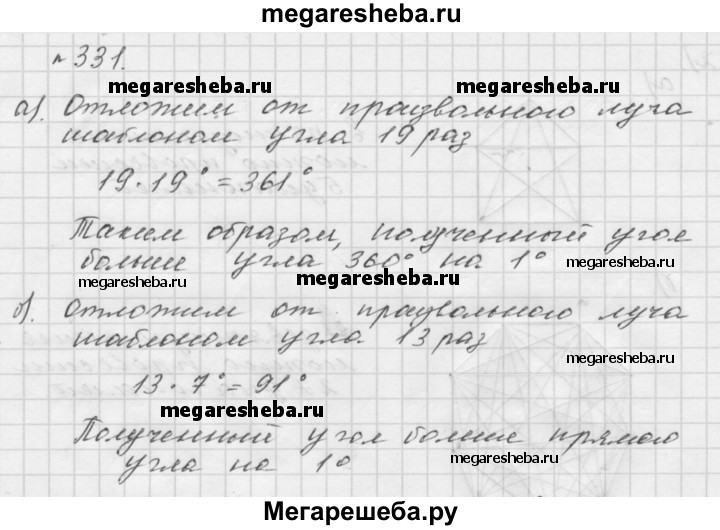 megaresheba.ru
№331.
megaresheba.ru megaresheba.ru
а). Отложим от произвольного луча
шаблоном угла 19 раз
19·19°=361°
Таким образом, полученный угол
больше угла 360° на 1°
megaresheba.ru megaresheba.ru megaresheba.ru
б). Отложим от произвольного луча
шаблоном угла 13 раз
megaresheba.ru
13·7°=91°
megaresheba.ru
Полученный угол больше прямого
угла на 1°
megaresheba.ru
Мегарешеба.ру